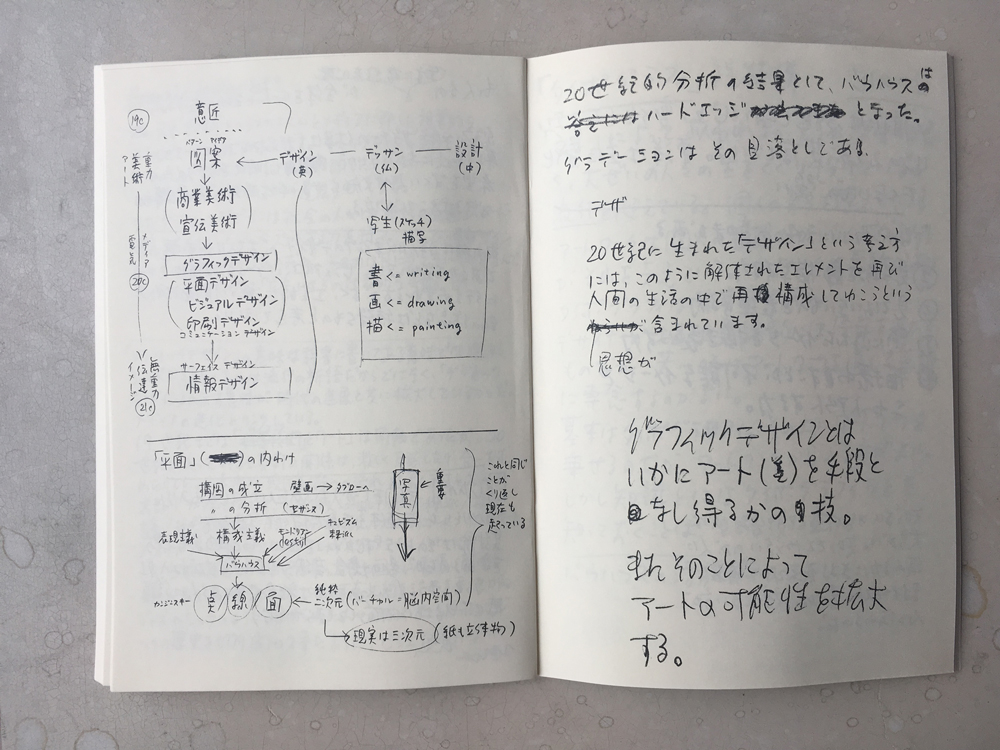 19c
意匠
パターン アイデア
図案 ← デザイン — デッサン — 設計
(英) (仏) (中)
重力
美術
アート
商業美術
宣伝美術
写生(スケッチ)
描写
グラフィックデザイン
書 <= writing
画 <= drawing
描 <= painting
メディア
20c
平面デザイン
ビジュアルデザイン
印刷デザイン
コミュニケーションデザイン
サーフェイスデザイン
情報デザイン
無重力
伝達
イメージ
21c
「平面」( )の内わけ
構図の成立 壁画→タブローへ
〃 の分析 (セザンヌ)
表現主義 構成主義 モンドリアン キュビズム
バウハウス
カンジンスキー 点/線/面 ← 純粋二次元(バーチャル=脳内空間)
現実は三次元 (紙も立体物)
写真 ← 重要
これと同じ
ことが
くり返し
現在も
起こっている
20世紀的分析の結果として、バウハウスは
ハードエッジとなった。
グラデーションはその目落としである。
デザ
20世紀に生まれた「デザイン」という考え方
には、このように解体されたエレメントを再び
人間の生活の中で再構成してゆこうという
思想が
含まれています。
グラフィックデザインとは
いかにアート(美)を手段と
なし得るかの技。
またそのことによって
アートの可能性を拡大
する。